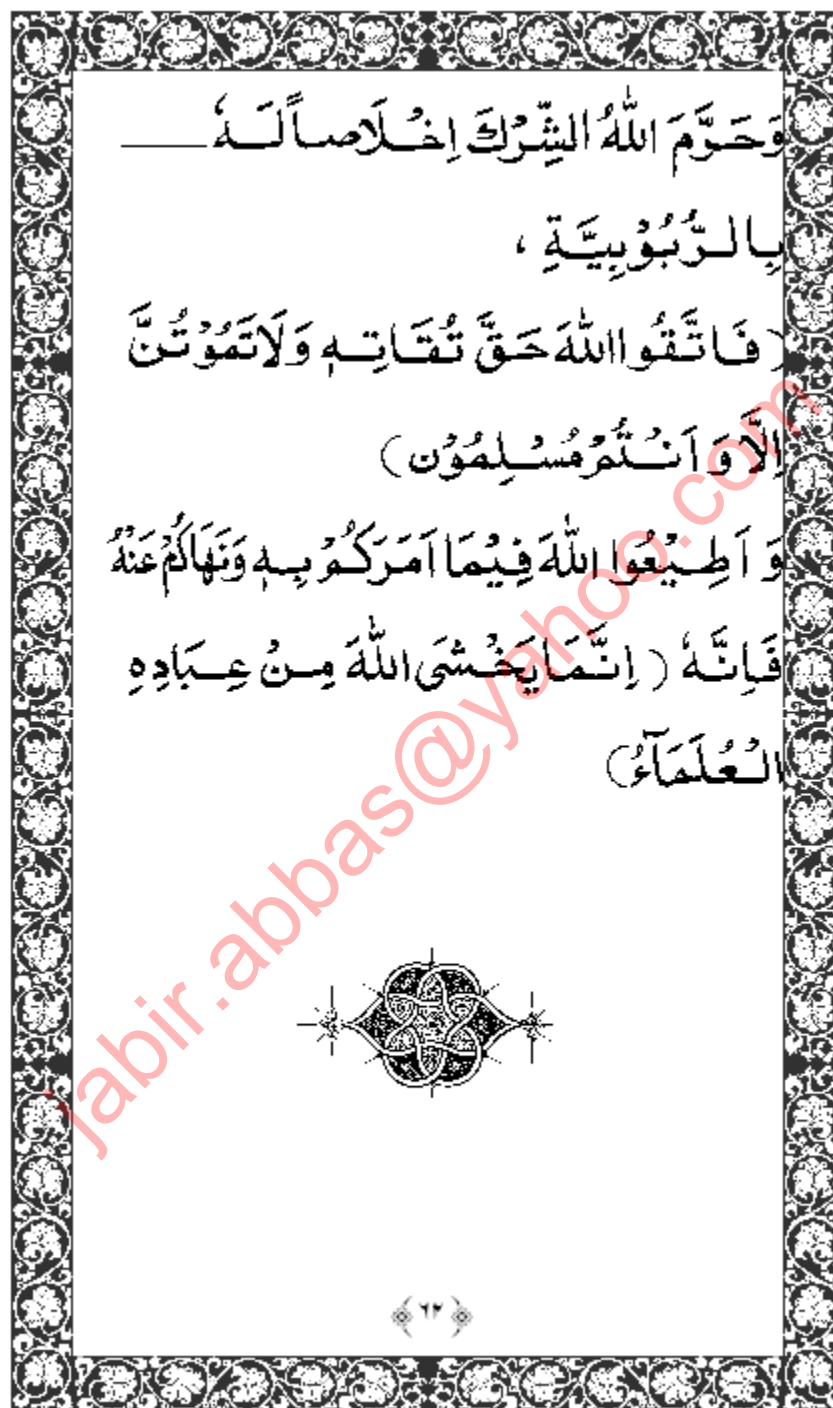 وَحَرَّمَ اللّٰهُ الشِّرْكَ اِخْلَاصاً لَهٗ
بِالرُّبُوْبِيَّةِ ،
(فَاتَّقُوا اللّٰهَ حَقَّ تُقَاتِهٖ وَلَا تَمُوْتُنَّ
اِلَّا وَ اَنْتُمْ مُسْلِمُوْن)
وَ اَطِيْعُوا اللّٰهَ فِيْمَا اَمَرَكُمْ بِهٖ وَنَهَاكُمْ عَنْهُ
فَاِنَّهٗ (اِنَّمَا يَخْشَى اللّٰهَ مِنْ عِبَادِهِ
الْعُلَمَآءُ)
jabir.abbas@yahoo.com
٦٢